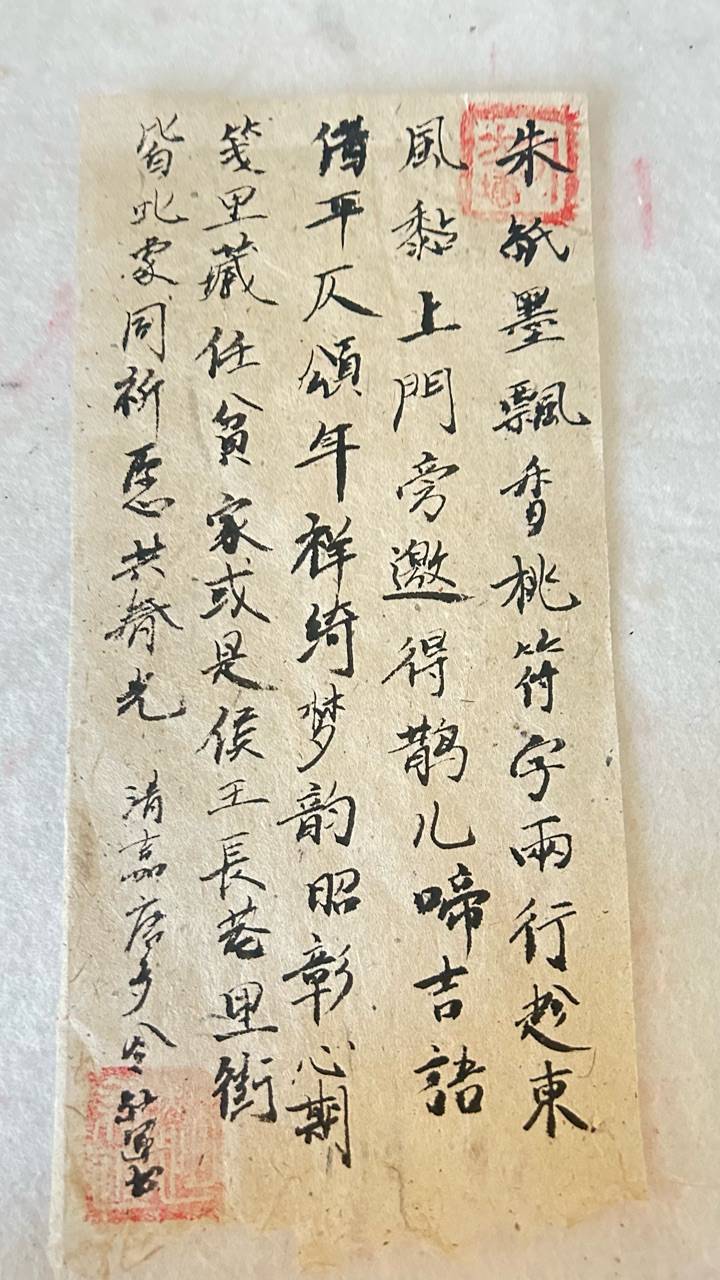 朱紙墨飄香桃符字兩行趁東
風黏上門旁邀得鵲儿啼吉語
借平仄頌年祥綺梦韵昭彰心期
箋里藏任貧家或是侯王長巷里衕
皆此家同祈愿共春光 清嘉唐多令